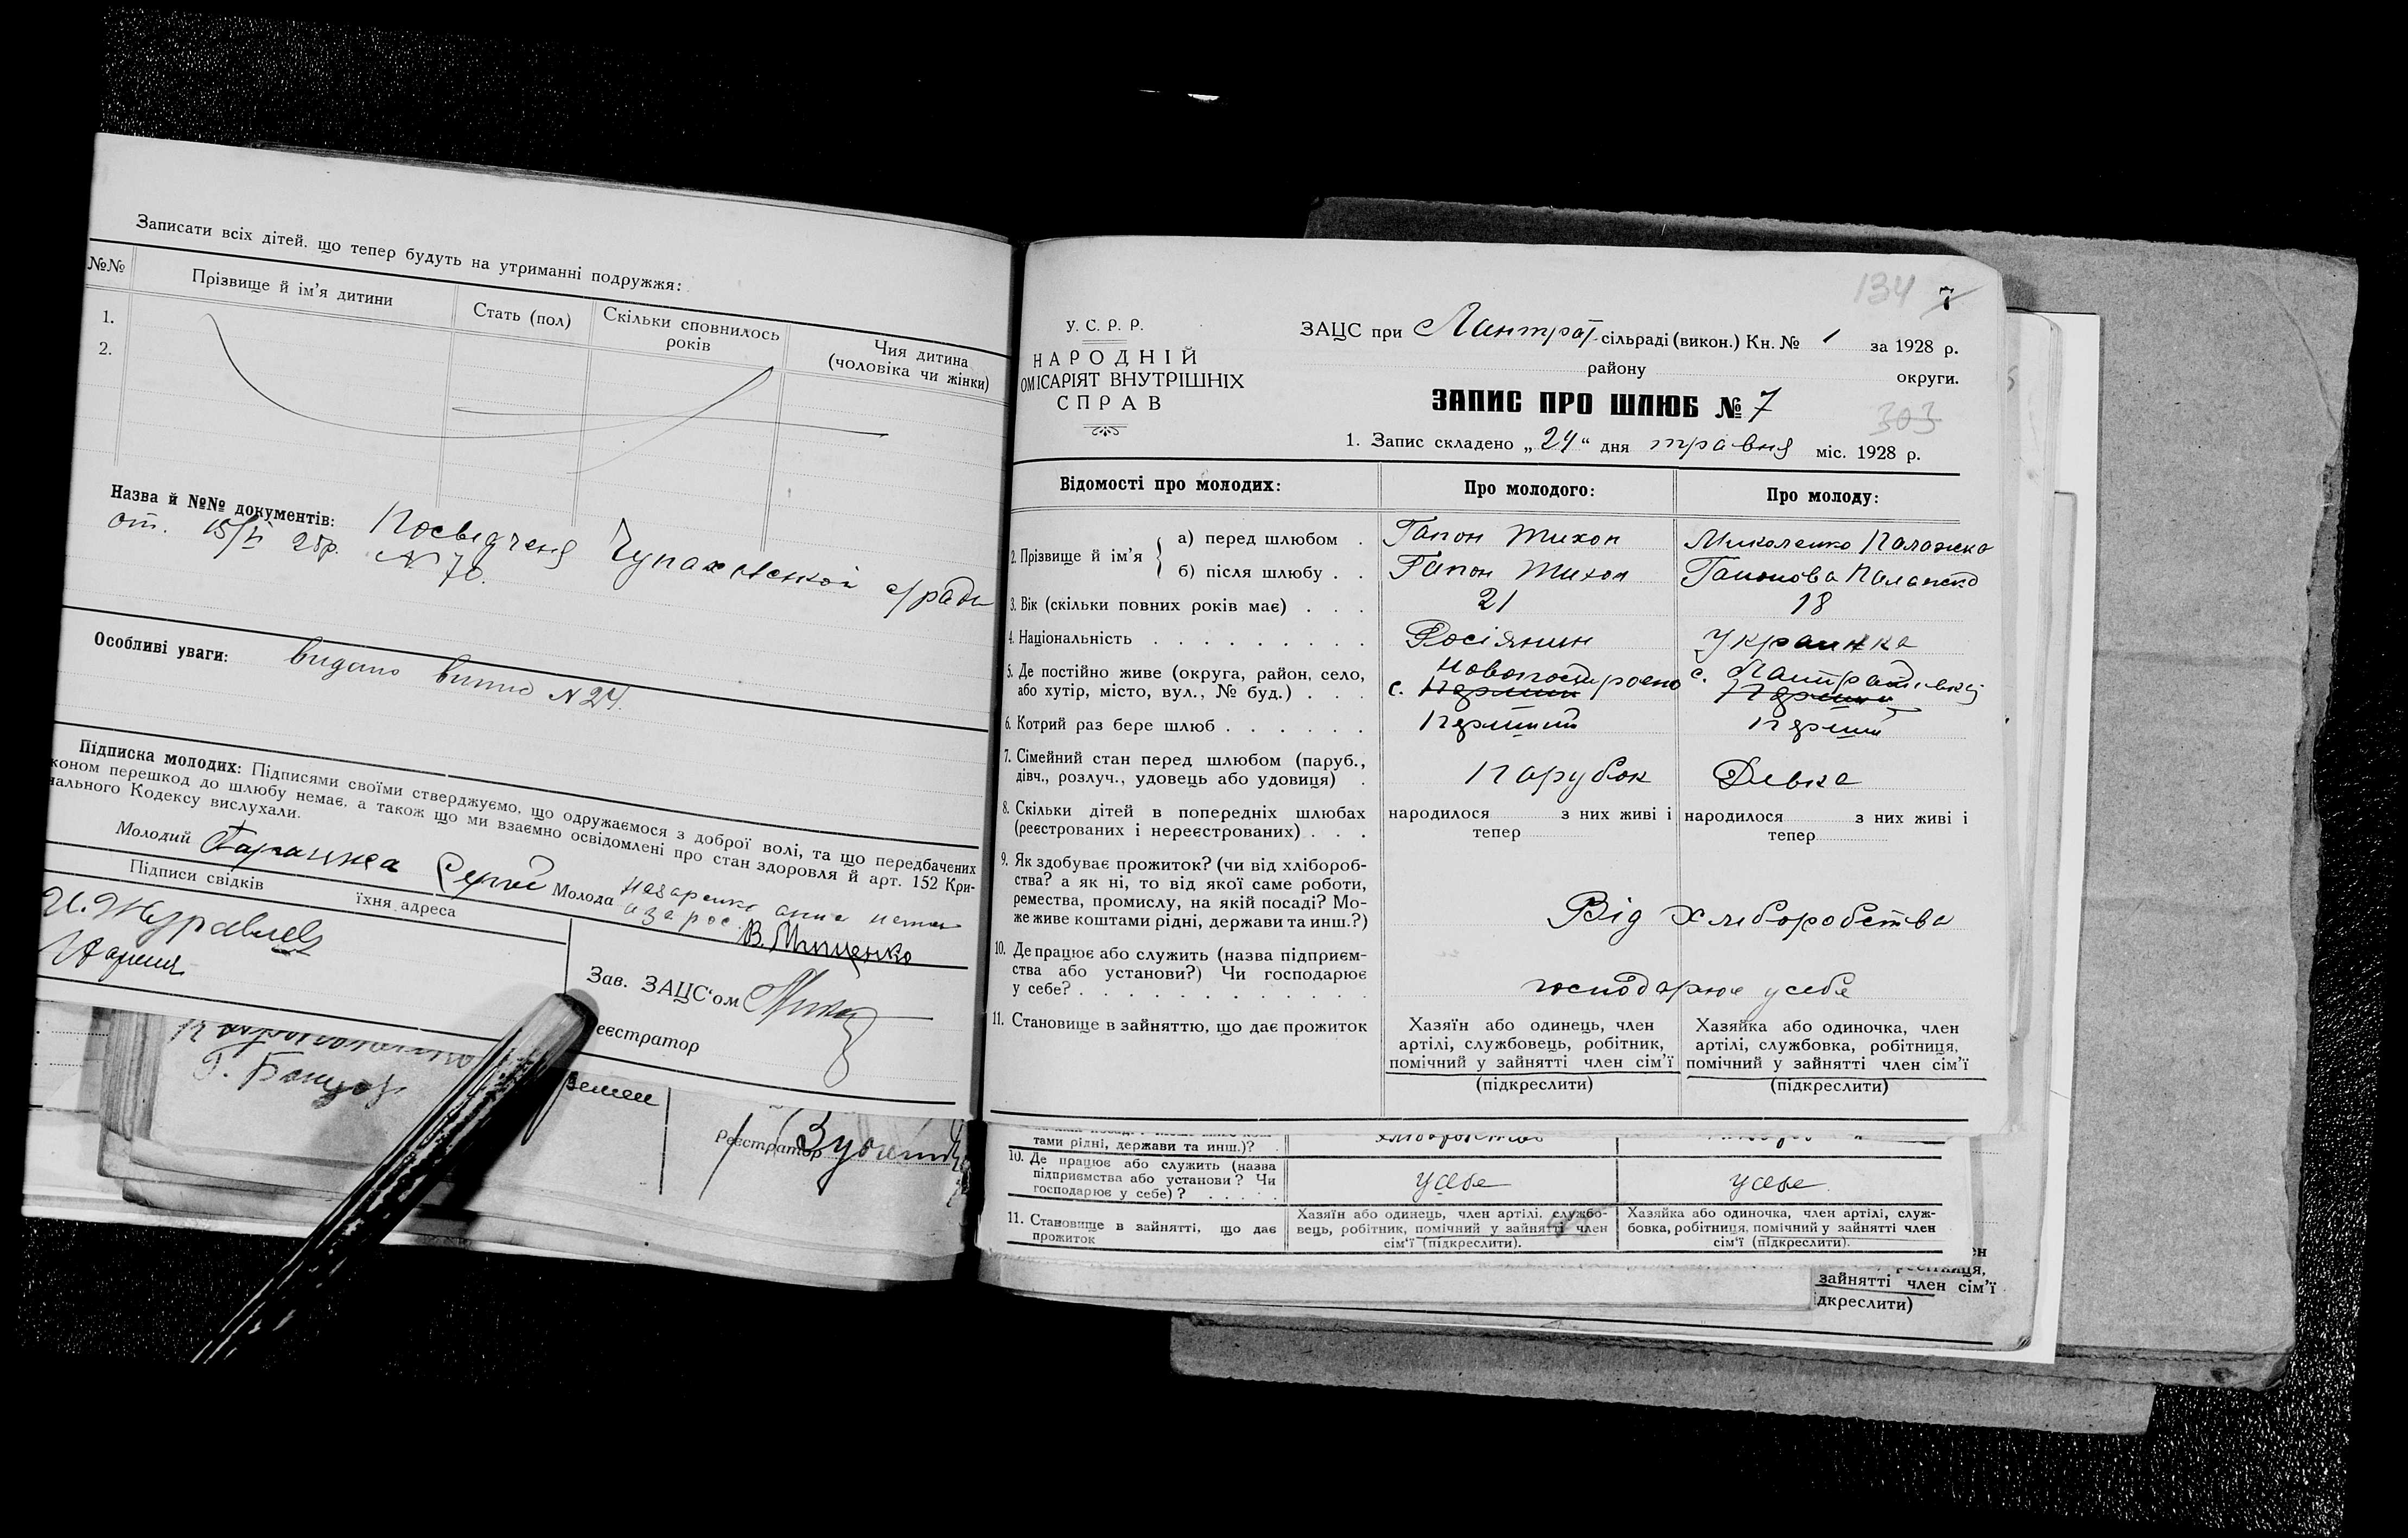 Записати всіх дітей, що тепер будуть на утриманні подружжя:
№№ Прізвище й ім'я дитини Стать (пол) Скільки сповнилось років Чия дитина (чоловіка чи жінки)
1.
2.
Назва й №№ документів: Посвідченя Чупаховської с/ради
от. 15/VI 28р. № 70.
Особливі уваги: видано випис N 24.
Підписка молодих: Підписями своїми стверджуємо, що одружаємося з доброї волі, та що передбачених
коном перешкод до шлюбу немає, а також що ми взаємно освідомлені про стан здоров'я й арт. 152 Кри-
нального Кодексу вислухали.
Молодий Сергій Молода Назаренко
за рос. В. Мищенко
Підписи свідків їхня адреса
И. Журавлев
Зав. ЗАЦС'ом
еєстратор
Г.
Реєстратор
134 7
У. С. Р. Р.
НАРОДНІЙ
ОМІСАРІЯТ ВНУТРІШНІХ
СПРАВ
ЗАЦС при Лантрат. сільраді (викон.) Кн. № 1 за 1928 р.
району округи.
ЗАПИС ПРО ШЛЮБ № 7
303
1. Запис складено „24“ дня травня міс. 1928 р.
Відомості про молодих: Про молодого: Про молоду:
2. Прізвище й ім'я а) перед шлюбом . Гапон Тихон Миколенко Палажка
б) після шлюбу . . Гапон Тихон Гапонова Палажка
3. Вік (скільки повних років має) . . . 21 18
4. Національність . . . . . . . . . Росіянин Украинка
5. Де постійно живе (округа, район, село,
або хутір, місто, вул., № буд.) . . . с. Новопостроено с. Лантратівка
6. Котрий раз бере шлюб . . . . . . Перший Перший
7. Сімейний стан перед шлюбом (паруб.,
дівч., розлуч., удовець або удовиця) . Парубок Девка
8. Скільки дітей в попередніх шлюбах народилося з них живі і народилося з них живі і
(реєстрованих і нереєстрованих) . . . тепер тепер
9. Як здобуває прожиток? (чи від хлібороб-
ства? а як ні, то від якої саме роботи,
ремества, промислу, на якій посаді? Мо-
же живе коштами рідні, держави та инш.?) Від хлиборобства
10. Де працює або служить (назва підприєм-
ства або установи?) Чи господарює
у себе? . . . . . . . . . . . . господарює у себе
11. Становище в зайняттю, що дає прожиток Хазяїн або одинець, член Хазяйка або одиночка, член
артілі, службовець, робітник, артілі, службовка, робітниця,
помічний у зайнятті член сім'ї помічний у зайнятті член сім'ї
(підкреслити) (підкреслити)
тами рідні, держави та инш.)?
10. Де працює або служить (назва
підприємства або установи? Чи
господарює у себе)? . . . . . у себе у себе
11. Становище в зайнятті, що дає
прожиток
Хазяїн або одинець, член артілі, службо- Хазяйка або одиночка, член артілі, служ-
вець, робітник, помічний у зайнятті член бовка, робітниця, помічний у зайнятті член
сім'ї (підкреслити). сім'ї (підкреслити).
зайнятті член сім'ї
дкреслити)